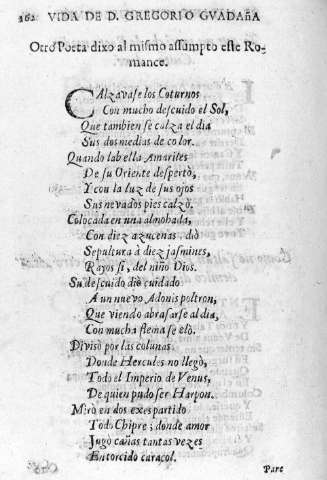 262 VIDA DE D. GREGORIO GVADAñA
Otro Poeta dixo al mismo assumpto este Ro-
mance.
CAlzavase los Coturnos
Con mucho descuido el Sol,
Que tambien se calza el dia
Sus dos medias de color.
Quando la bella Amarites
De su Oriente despertò,
Y con la luz de sus ojos
Sus nevados pies calzò.
Colocada en una almohada,
Con diez azucenas, diò
Sepultura à diez jasmines,
Rayos si, del niño Dios.
Su descuido diò cuidado
A un nuevo Adonis poltron,
Que viendo abrasarse al dia,
Con mucha flema se elò.
Divisò por las colunas
Donde Hercules no llegò,
Todo el Imperio de Venus,
De quien pudo ser Harpon.
Mirò en dos exes partido
Todo Chipre; donde amor
Jugò cañas tantas vezes
En torcido caracol.
Parc